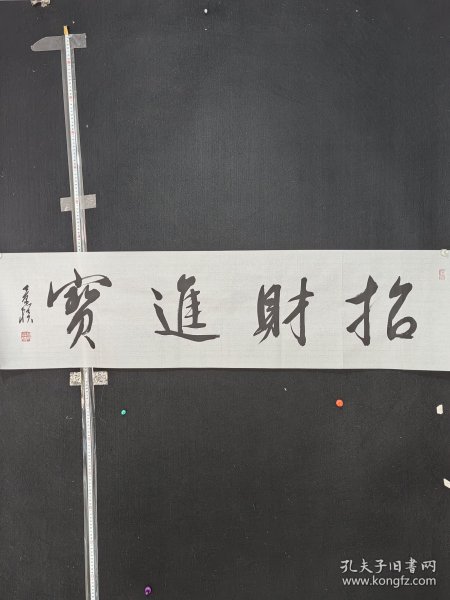 招財進寳
孔夫子旧书网
www.kongfz.com